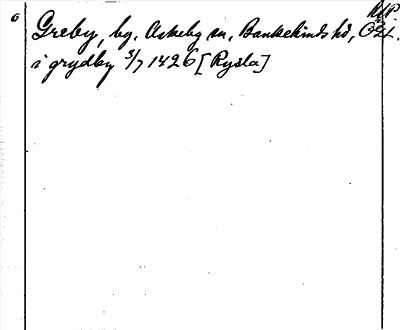 Greby, by. Askeby sn, Bankekinds hd, Ögl.
i grydby 3/7 1426 [Rysla]